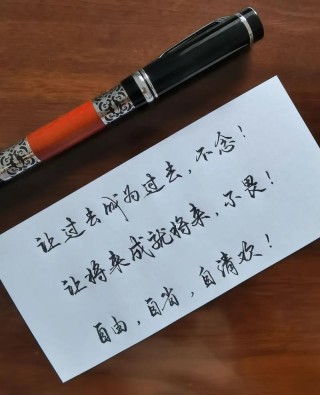 让过去成为过去，不念！
让将来成就将来，不畏！
自由，自省，自清欢！